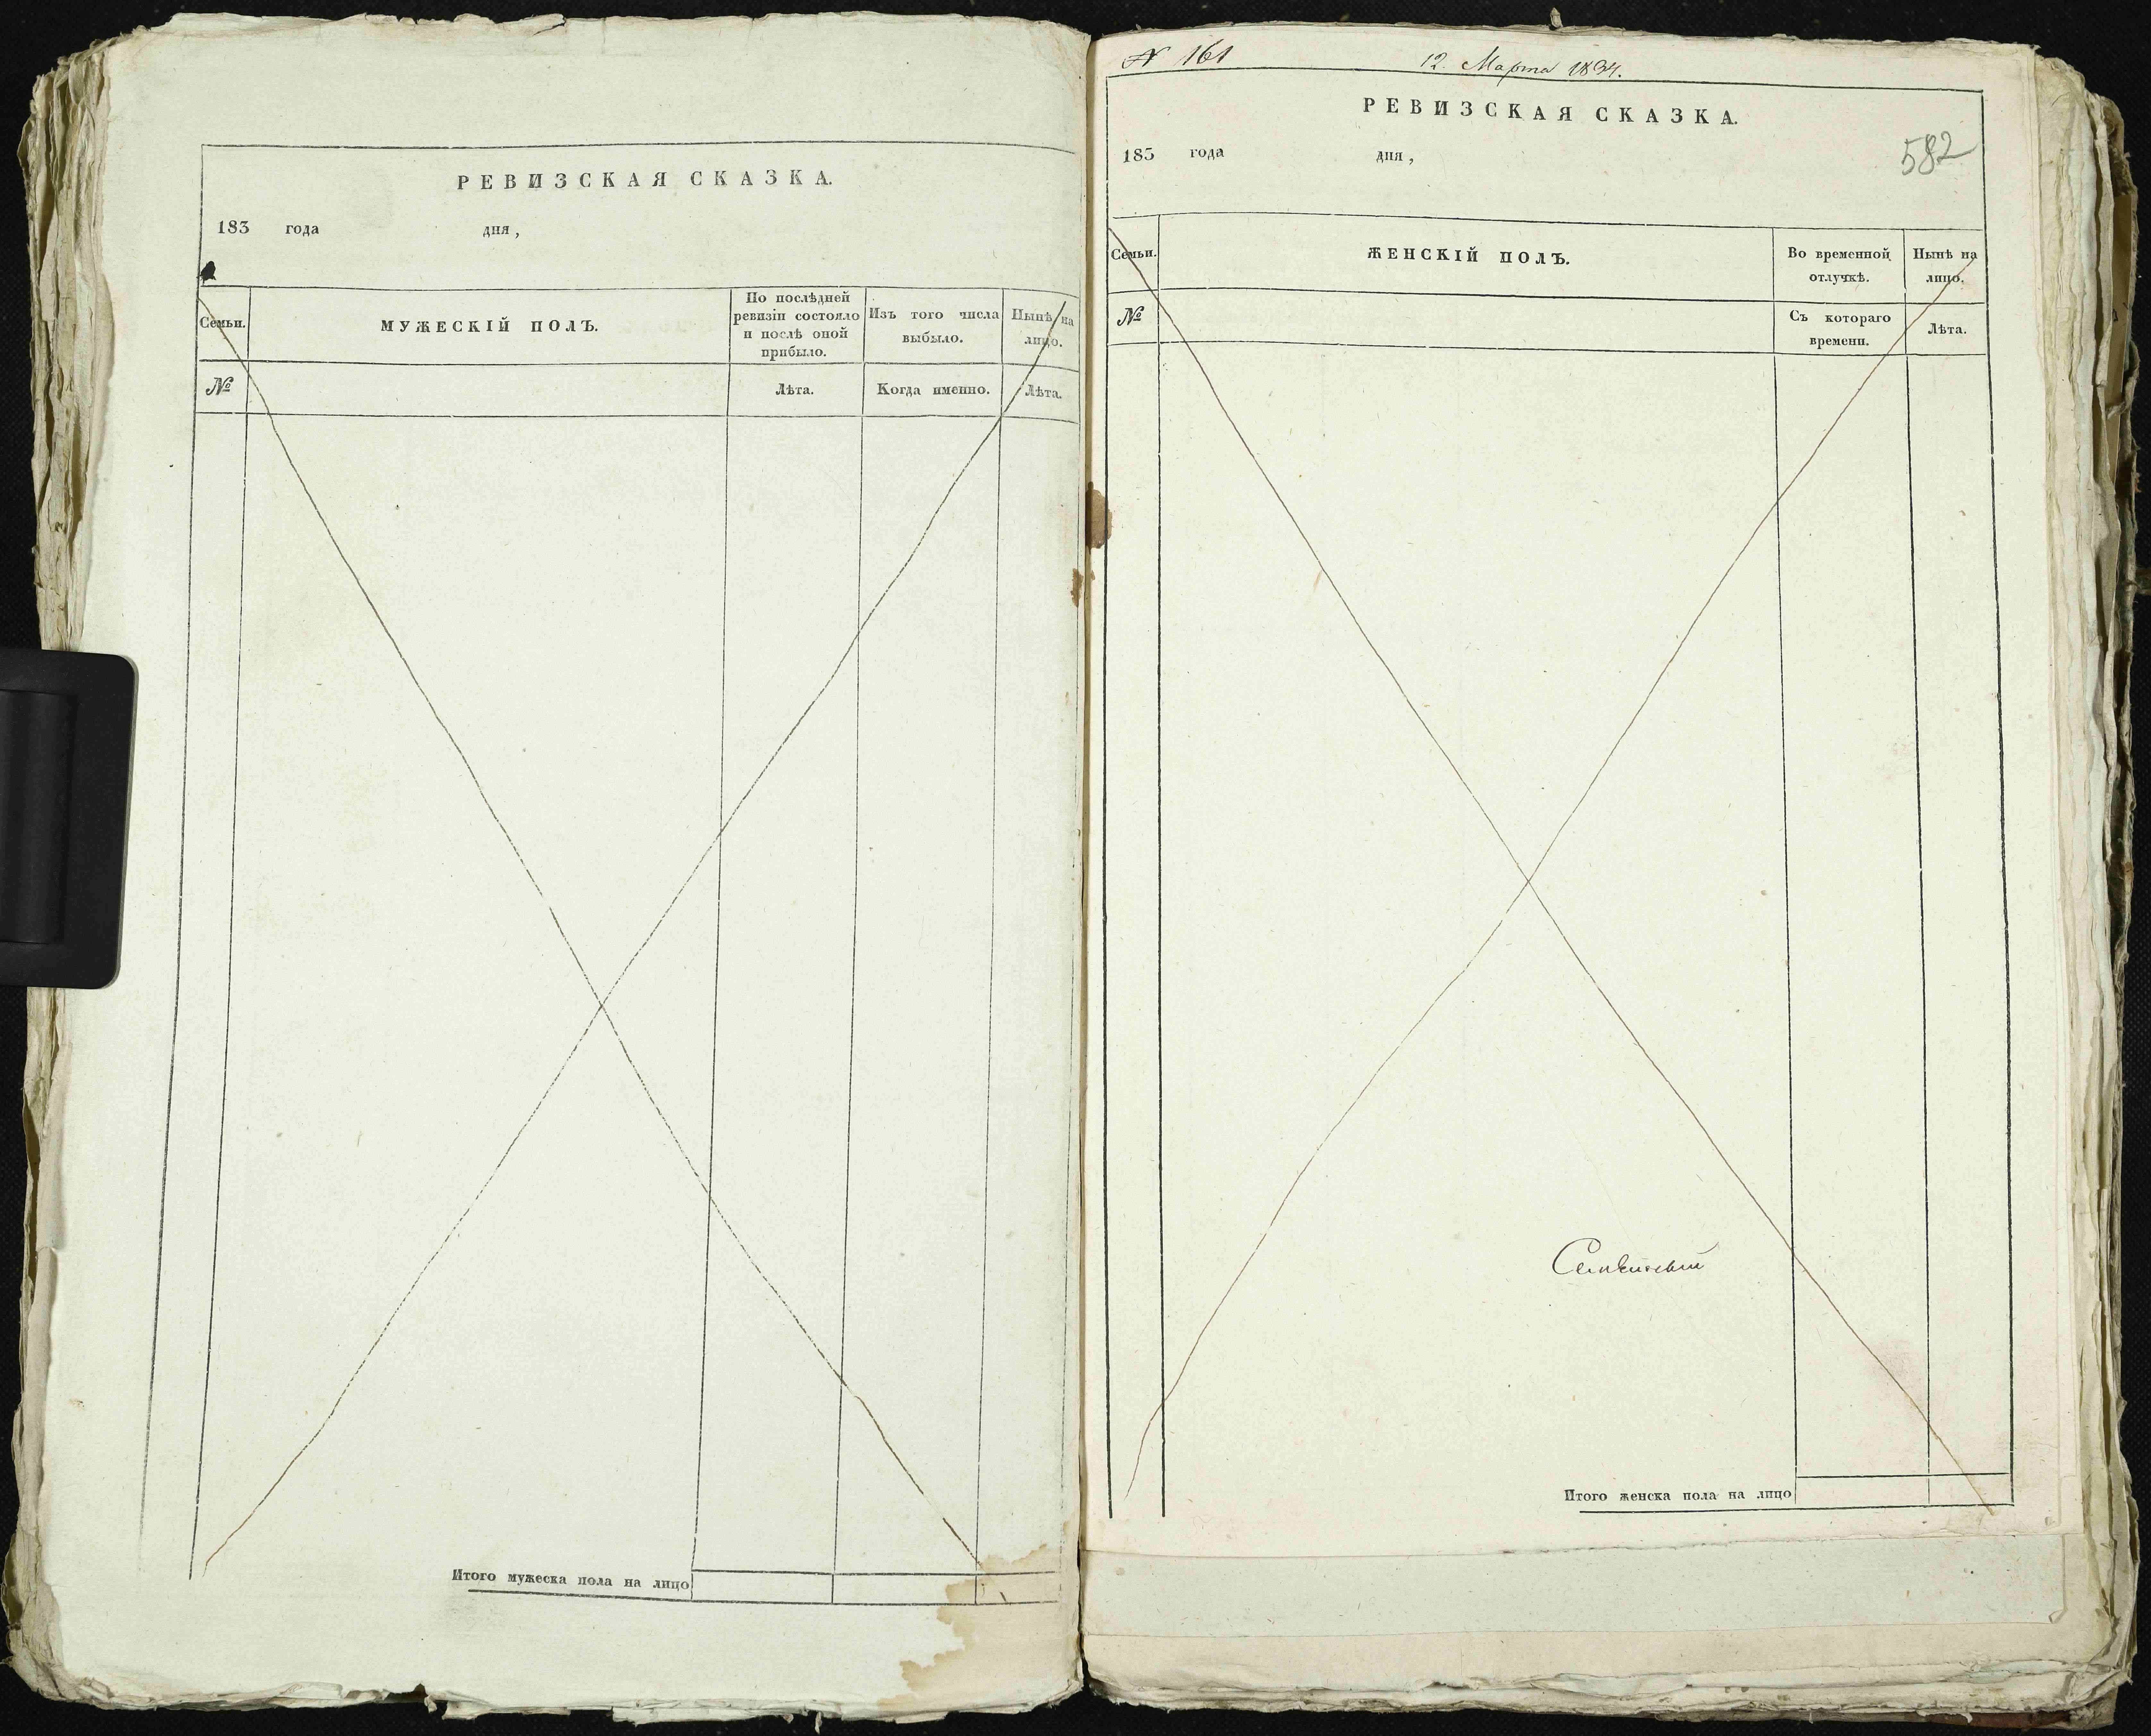 РЕВИЗСКАЯ СКАЗКА.
183 года дня,
Семьи.
МУЖЕСКІЙ ПОЛЪ.
По послѣдней ревизіи состояло и послѣ оной прибыло.
Изъ того числа выбыло.
Нынѣ на лицо.
№
Лѣта.
Когда именно.
Лѣта.
Итого мужеска пола на лицо
№ 161
12. Марта 1834.
РЕВИЗСКАЯ СКАЗКА.
183 года дня,
582
Семьи.
ЖЕНСКІЙ ПОЛЪ.
Во временной отлучкѣ.
Нынѣ на лицо.
№
Съ котораго времени.
Лѣта.
Итого женска пола на лицо